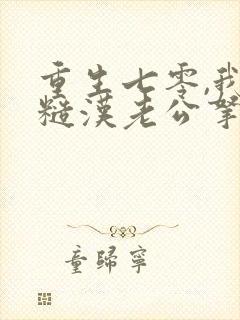 重生七零,我
糙漢老公掌
童歸寧